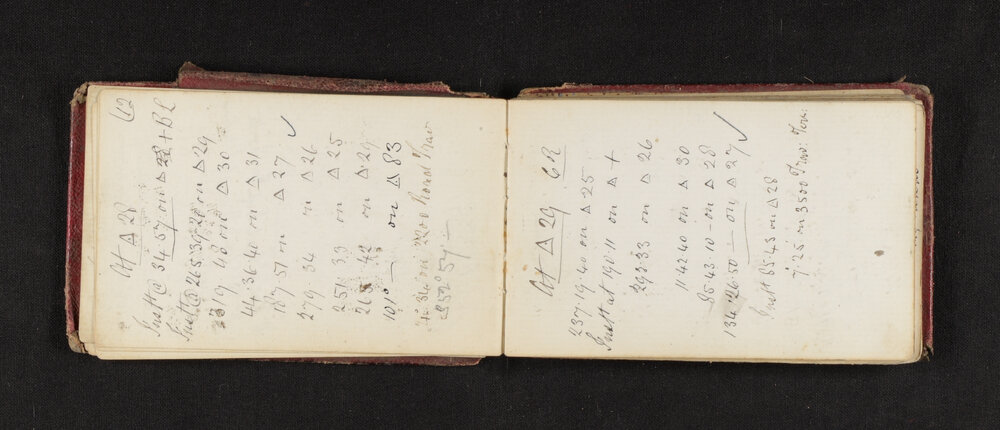 (12
At △ 28
Inst @ 34 57 on △ 28 + BL
Inst @ 265:30:20 on △ 29
319 48 on △ 30
44 36 40 on △ 31
187 51 on △ 27 ✓
279 · 34 on △ 26
251 : 33 on △ 25
265 : 42 on △ 29
101° — on △ 83
34 on 2200 Road Trav
252° 57
At △ 29
237·19·40 on △ 25
Inst at 190·11 on △ +
293:33 on △ 26
11·42·40 on △ 30
85·43·10 – on △ 28
134·26·50 – on △ 27 ✓
Inst 85 43 on △ 28
7·25 on 3500 Trav: